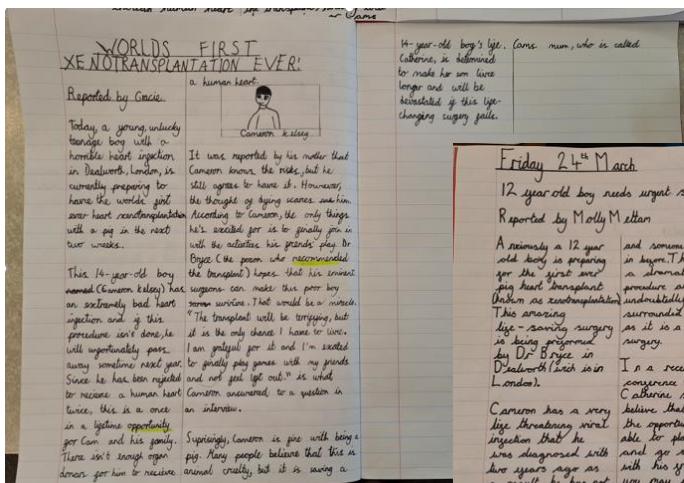 WORLDS FIRST
XENOTRANSPLANTATION EVER!
Reported by Gracie.
Today, a young, unlucky
teenage boy with a
horrible heart infection
in Dealworth, London, is
currently preparing to
have the worlds first
ever heart xenotransplantation
with a pig in the next
two weeks.
This 14-year-old boy
named (Cameron kelsey) has
an extremely bad heart
infection and if this
procedure isn't done, he
will unfortunately pass
away sometime next year.
Since he has been rejected
to recieve a human heart
twice, this is a once
in a lifetime opportunity
for Cam and his family.
There isn't enough organ
donors for him to recieve
a human heart.
Cameron kelsey
It was reported by his mother that
Cameron knows the risks, but he
still agrees to have it. However,
the thought of dying scares him.
According to Cameron, the only things
he's excited for is to finally join in
with the activities his friends' play. Dr
Bryce (the person who recommended
the transplant) hopes that his eminent
surgeons can make this poor boy
survive. That would be a miracle.
"The transplant will be terrifying, but
it is the only chance I have to live.
I am grateful for it and I'm excited
to finally play games with my friends
and not feel left out." is what
Cameron answered to a question in
an interview.
Suprisingly, Cameron is fine with being a
pig. Many people believe that this is
animal cruelty, but it is saving a
14-year-old boy's life. Cams mum, who is called
Catherine, is determined
to make her son live
longer and will be
devastated if this life-
changing surgery fails.
Friday 24th March
12 year old boy needs urgent s
Reported by Molly Mettam
Anxiously a 12 year
old boy is preparing
for the first ever
pig heart transplant
known as xenotransplantation
This amazing
life-saving surgery
is being preformed
by Dr Bryce in
Dealworth (wich is in
London).
Cameron has a very
life threatening viral
infection that he
was diagnosed with
two years ago as
and someon
in byom. Th
a drama
procedure a
undoubtedly
surrounded
as it is a
surgery.
In a rece
confrence
Catherine
believe tha
the opportu
able to pla
and go
with his
you may